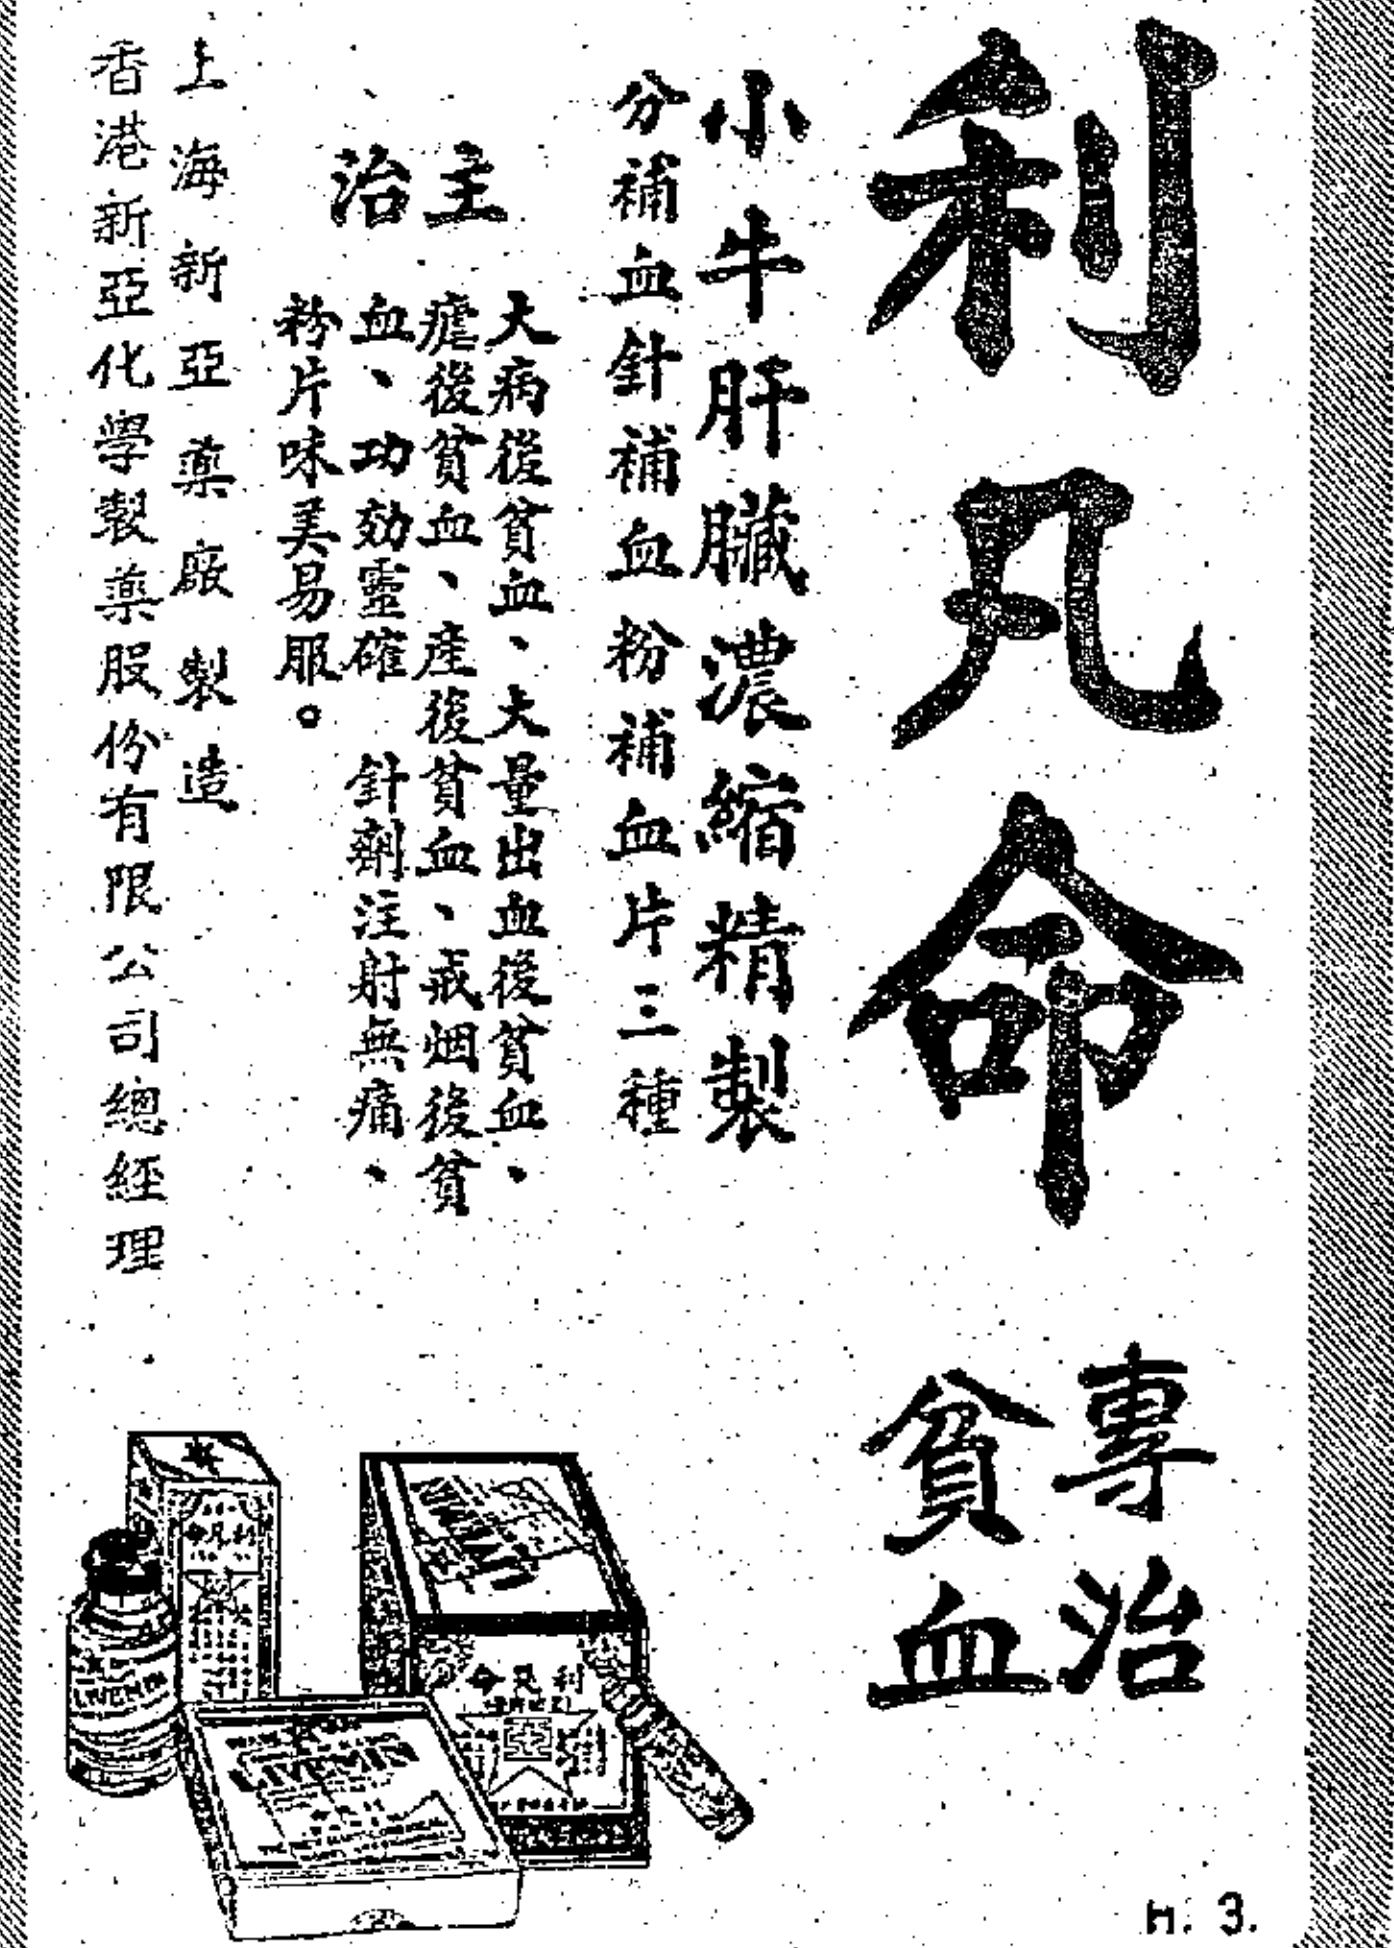 利凡命
專治
貧血
小牛肝臟濃縮精製
分補血針補血粉補血片三種
主治
大病後貧血、大量出血後貧血、
瘧後貧血、產後貧血、戒烟後貧
血、功効靈確 針劑注射無痛、
粉片味美易服。
上海新亞藥廠製造
香港新亞化學製藥股份有限公司總經理
命凡利
LIVEMIN
命凡利
亞
LIVEMIN
H. 3.